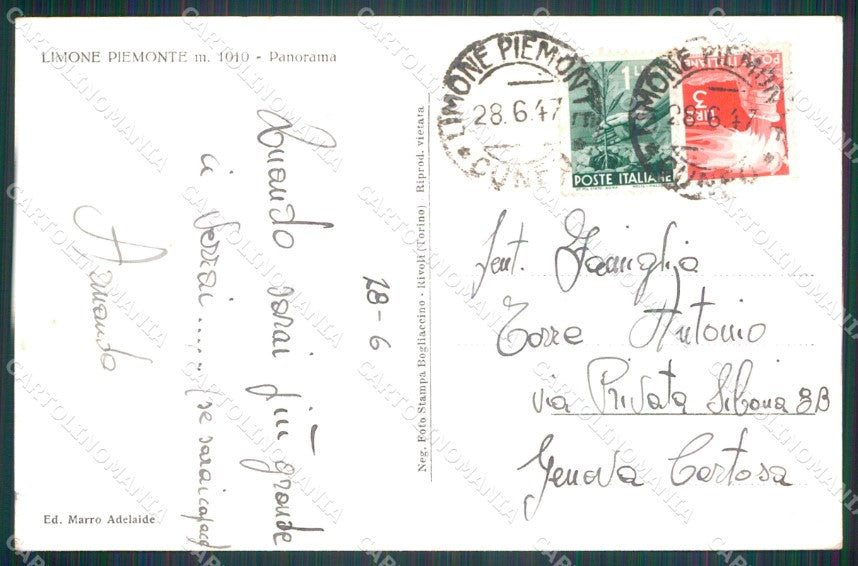 LIMONE PIEMONTE m. 1010 - Panorama
Quando sarai più grande
ci verrai...... (se sarai capace)
Armando
28-6
Ed. Marro Adelaide
Neg. Foto Stampa Bogliaccino - Rivoli (Torino) Riprod. vietata
LIMONE PIEMONTE
28.6.47
CUNEO
1 LIRA
POSTE ITALIANE
LIMONE PIEMONTE
28.6.47
CUNEO
POSTE ITALIANE
3 LIRE
Gent. Famiglia
Torre Antonio
via Privata Sibona 8B
Genova Certosa
CARTOLINOMANIA